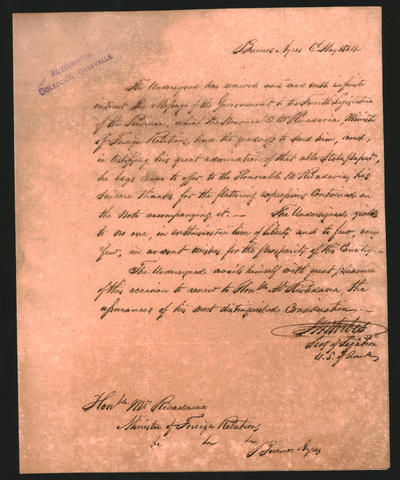 AUTÓGRAFOS
COLECCIÓN CASAVALLE
Buenos Ayres 6th May 1824
The Undersigned has received and read with infinite
interest the Message of the Government to the Fourth Legislature
of the Province, which the Honorable Mr Rivadavia Minister
of Foreign Relations, have the goodness to send him, and,
in testifying his great admiration of that able State paper,
he begs leave to offer to the Honorable Mr Rivadavia his
sincere thanks for the flattering expressions contained in
the Note accompanying it. — The Undersigned yields
to no one, in enthusiastic love of Liberty and to few, very
few, in ardent wishes for the prosperity of this Country. —
The Undersigned avails himself with great pleasure
of this occasion to renew to Honble Mr Rivadavia, the
assurances of his most distinguished Consideration. —
Secy of Legation
U.S. of Am
Honble Mr Rivadavia
Minister of Foreign Relations
Buenos Ayres